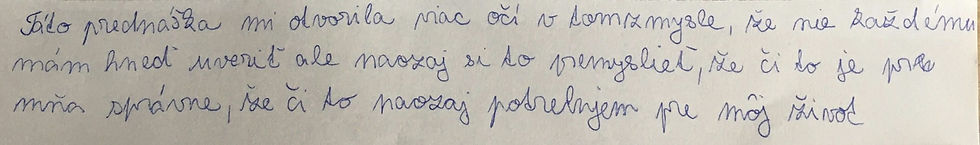 Táto prednáška mi otvorila viac očí v tomzmysle, že nie každému
mám hneď uveriť ale naozaj si to premyslieť, že či to je pre
mňa správne, že či to naozaj potrebujem pre môj život